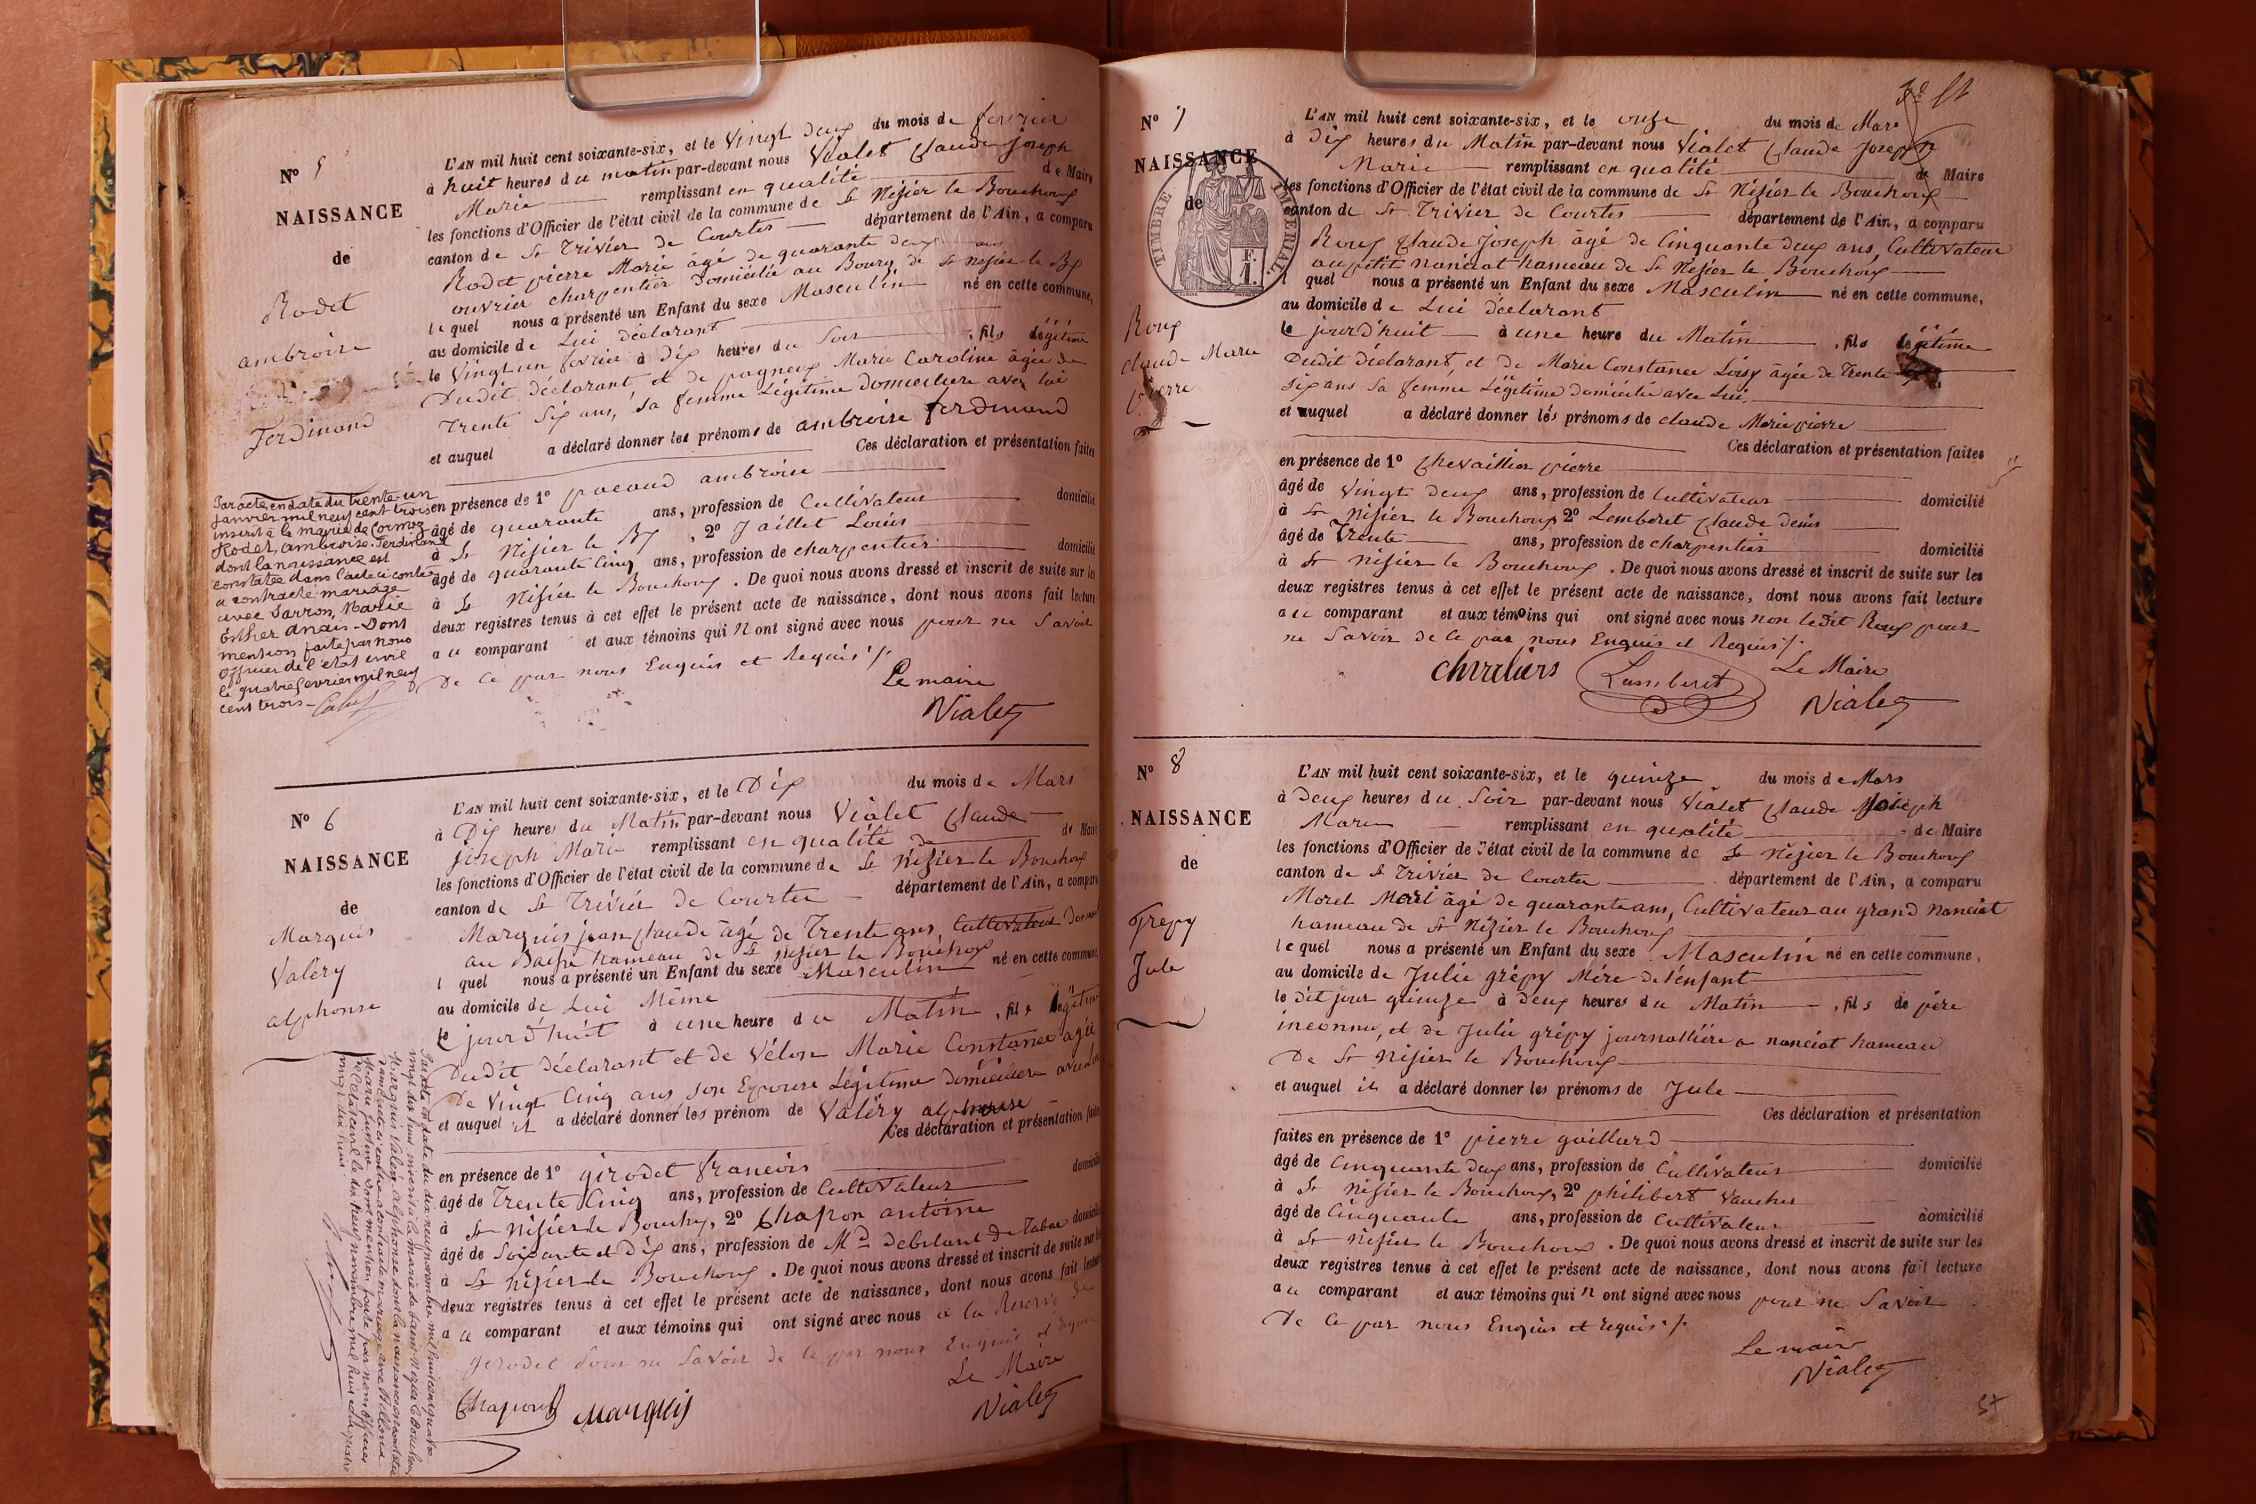 Nº 5
NAISSANCE
de
Rodet
ambroise
Ferdinand
L'AN mil huit cent soixante-six, et le Vingt deux du mois de fevrier
à huit heures du matin par-devant nous Vialet Claude joseph
Marie remplissant en qualité de Maire
les fonctions d'Officier de l'état civil de la commune de St Nizier le Bouchoux
canton de St Trivier de Courtes département de l'Ain, a comparu
Rodet pierre Marie âgé de quarante deux ans
ouvrier charpentier Domicilié au Bourg de St nizier le Bx
lequel nous a présenté un Enfant du sexe Masculin né en cette commune,
au domicile de Lui déclarant
le Vingt un fevrier à Dix heures du Soir, fils légitime
Dudit déclarant et de pagneux Marie Caroline âgée de
trente Six ans, sa femme Légitime Domiciliée avec lui
et auquel a déclaré donner les prénoms de ambroise ferdinand
Ces déclaration et présentation faites
en présence de 1º pacoud ambroise
âgé de quarante ans, profession de Cultivateur domicilié
à St Nizier le Bx, 2º Jaillet Louis
âgé de quarante Cinq ans, profession de charpentier domicilié
à St Nizier le Bouchoux. De quoi nous avons dressé et inscrit de suite sur les
deux registres tenus à cet effet le présent acte de naissance, dont nous avons fait lecture
au comparant et aux témoins qui n ont signé avec nous pour ne Savoir
De Ce par nous Enquis et Requis ./.
Le maire
Vialet
Par acte en date du trente-un
janvier mil neuf cent trois
inscrit à la mairie de Cormoz
Rodet, ambroise Ferdinand
dont la naissance est
constatée dans l'acte ci contre
a contracté mariage
avec Sarron, Marie
Esther Anaïs - Dont
mention faite par nous
officier de l'état civil
le quatre fevrier mil neuf
cent trois -
Nº 6
NAISSANCE
de
Marquis
Valéry
alphonse
L'AN mil huit cent soixante-six, et le Dix du mois de Mars
à Dix heures du Matin par-devant nous Vialet Claude
joseph Marie remplissant en qualité de de Maire
les fonctions d'Officier de l'état civil de la commune de St Nizier le Bouchoux
canton de St Trivier de Courtes département de l'Ain, a comparu
Marquis jean Claude âgé de Trente ans, Cultivateur
au hameau de St Nizier le Bouchoux
l quel nous a présenté un Enfant du sexe Masculin né en cette commune,
au domicile de Lui Même
le jourd'huit à une heure du Matin, fils légitime
Dudit Déclarant et de Vélon Marie Constance agée
De Vingt Cinq ans, son Epouse Légitime Domiciliée avec lui
et auquel il a déclaré donner les prénom de Valéry alphonse
Ces déclaration et présentation faites
en présence de 1º girodet francois domicilié
âgé de Trente Cinq ans, profession de Cultivateur
à St Nizier le Bouchx, 2º Chapon antoine
âgé de Soixante et Dix ans, profession de Md Debitant de Tabac domicilié
à St Nizier le Bouchoux. De quoi nous avons dressé et inscrit de suite sur les
deux registres tenus à cet effet le présent acte de naissance, dont nous avons fait lecture
au comparant et aux témoins qui ont signé avec nous a la Reserve du
girodet pour ne Savoir de ce par nous Enquis et Requis
Le Maire
Chapon Marquis Vialet
Par acte en date du dix neuf novembre mil huit cent quatre
vingt dix huit inscrit à la mairie de Saint-Nizier le Bouchoux
Marquis Valéry Alphonse dont la naissance est constatée
dans l'acte ci contre a contracté mariage avec
Marie Justine Dont mention faite par nous officier
de l'état civil le dix neuf novembre mil huit cent quatre
vingt dix huit
Nº 7
NAISSANCE
de
TIMBRE IMPERIAL
F.
1.
Roux
Claude Marie
pierre
51
L'AN mil huit cent soixante-six, et le onze du mois de Mars
à Dix heures du Matin par-devant nous Vialet Claude Joseph
Marie remplissant en qualité de Maire
les fonctions d'Officier de l'état civil de la commune de St Nizier le Bouchoux
canton de St Trivier de Courtes département de l'Ain, a comparu
Roux Claude Joseph âgé de Cinquante deux ans, Cultivateur
au petit nanciat hameau de St Nizier le Bouchoux
l quel nous a présenté un Enfant du sexe Masculin né en cette commune,
au domicile de Lui déclarant
le jourd'huit à une heure du Matin, fils légitime
Dudit déclarant, et de Marie Constance Loisy âgée de Trente
Six ans Sa femme Légitime domiciliée avec Lui
et auquel a déclaré donner les prénoms de Claude Marie pierre
Ces déclaration et présentation faites
en présence de 1º Chevaillier pierre
âgé de Vingt deux ans, profession de Cultivateur domicilié
à St Nizier le Bouchoux 2º Lemberet Claude denis
âgé de Trente ans, profession de charpentier domicilié
à St Nizier le Bouchoux. De quoi nous avons dressé et inscrit de suite sur les
deux registres tenus à cet effet le présent acte de naissance, dont nous avons fait lecture
au comparant et aux témoins qui ont signé avec nous non ledit Roux pour
ne Savoir de Ce par nous Enquis et Requis ./.
Lamberet Le Maire
Vialet
Nº 8
NAISSANCE
de
Grepy
Jule
L'AN mil huit cent soixante-six, et le quinze du mois de Mars
à Deux heures du Soir par-devant nous Vialet Claude Joseph
Marie remplissant en qualité de Maire
les fonctions d'Officier de l'état civil de la commune de St Nizier le Bouchoux
canton de St Trivier de Courtes département de l'Ain, a comparu
Morel Mari âgé de quarante ans, Cultivateur au grand Nanciat
hameau de St Nizier le Bouchoux
lequel nous a présenté un Enfant du sexe Masculin né en cette commune,
au domicile de Julie grépy Mère de l'enfant
le dit jour quinze à Deux heures du Matin, fils de père
inconnu, et de Julie grépy journallière a nanciat hameau
De St Nizier le Bouchoux
et auquel il a déclaré donner les prénoms de Jule
Ces déclaration et présentation
faites en présence de 1º pierre guillard
âgé de Cinquante deux ans, profession de Cultivateur domicilié
à St Nizier le Bouchoux, 2º philibert Vaucher
âgé de Cinquante ans, profession de Cultivateur domicilié
à St Nizier le Bouchoux. De quoi nous avons dressé et inscrit de suite sur les
deux registres tenus à cet effet le présent acte de naissance, dont nous avons fait lecture
au comparant et aux témoins qui n ont signé avec nous pour ne Savoir
De Ce par nous Enquis et requis ./.
Le maire
Vialet